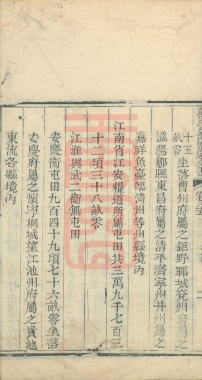 十五坐落曹州府屬之鉅野鄆城兗州府屬之
滋陽鄒縣東昌府屬之清平濟寧州并州屬之
嘉祥魚臺臨清州等州縣境內
江南省江安糧道所屬屯田共三萬九千七百三
十二頃三十八畝零
江淮興武二衛無屯田
安慶衛屯田九百四十九頃七十六畝零坐落
安慶府屬之懷寧桐城望江池州府屬之貴池
東流各縣境內